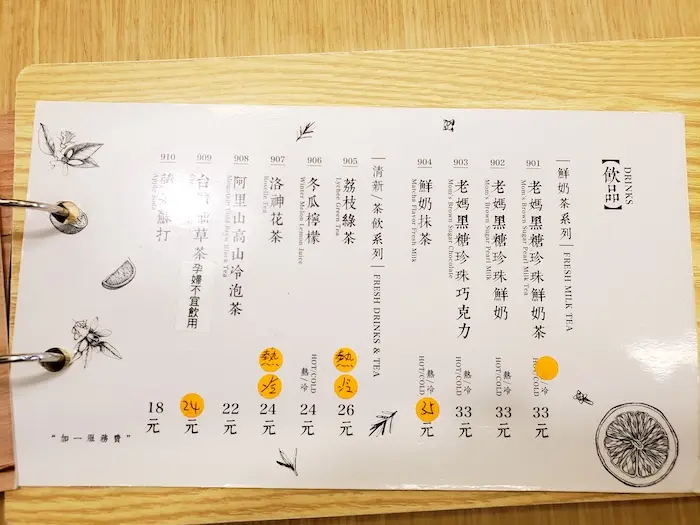 DRINKS
【飲品】
鮮奶茶系列 | FRESH MILK TEA
901
老媽黑糖珍珠鮮奶茶
Mom's Brown Sugar Pearl Milk Tea
/冷
HOT/COLD
33元
902
老媽黑糖珍珠鮮奶
Mom's Brown Sugar Pearl Milk
熱/冷
HOT/COLD
33元
903
老媽黑糖珍珠巧克力
Mom's Brown Sugar Chocolate
熱/冷
HOT/COLD
33元
904
鮮奶抹茶
Matcha Flavor Fresh Milk
熱/冷
HOT/COLD
35元
清新/茶飲系列 | FRESH DRINKS & TEA
905
荔枝綠茶
Lychee Green Tea
熱 冷
26元
906
冬瓜檸檬
Winter Melon Lemon Juice
熱/冷
HOT/COLD
24元
907
洛神花茶
Roselle Tea
熱 冷
24元
908
阿里山高山冷泡茶
Mountain Cold Brew Tea
22元
909
台草茶 孕婦不宜飲用
24元
910
打
Apple Soda
18元
"加一服務費"